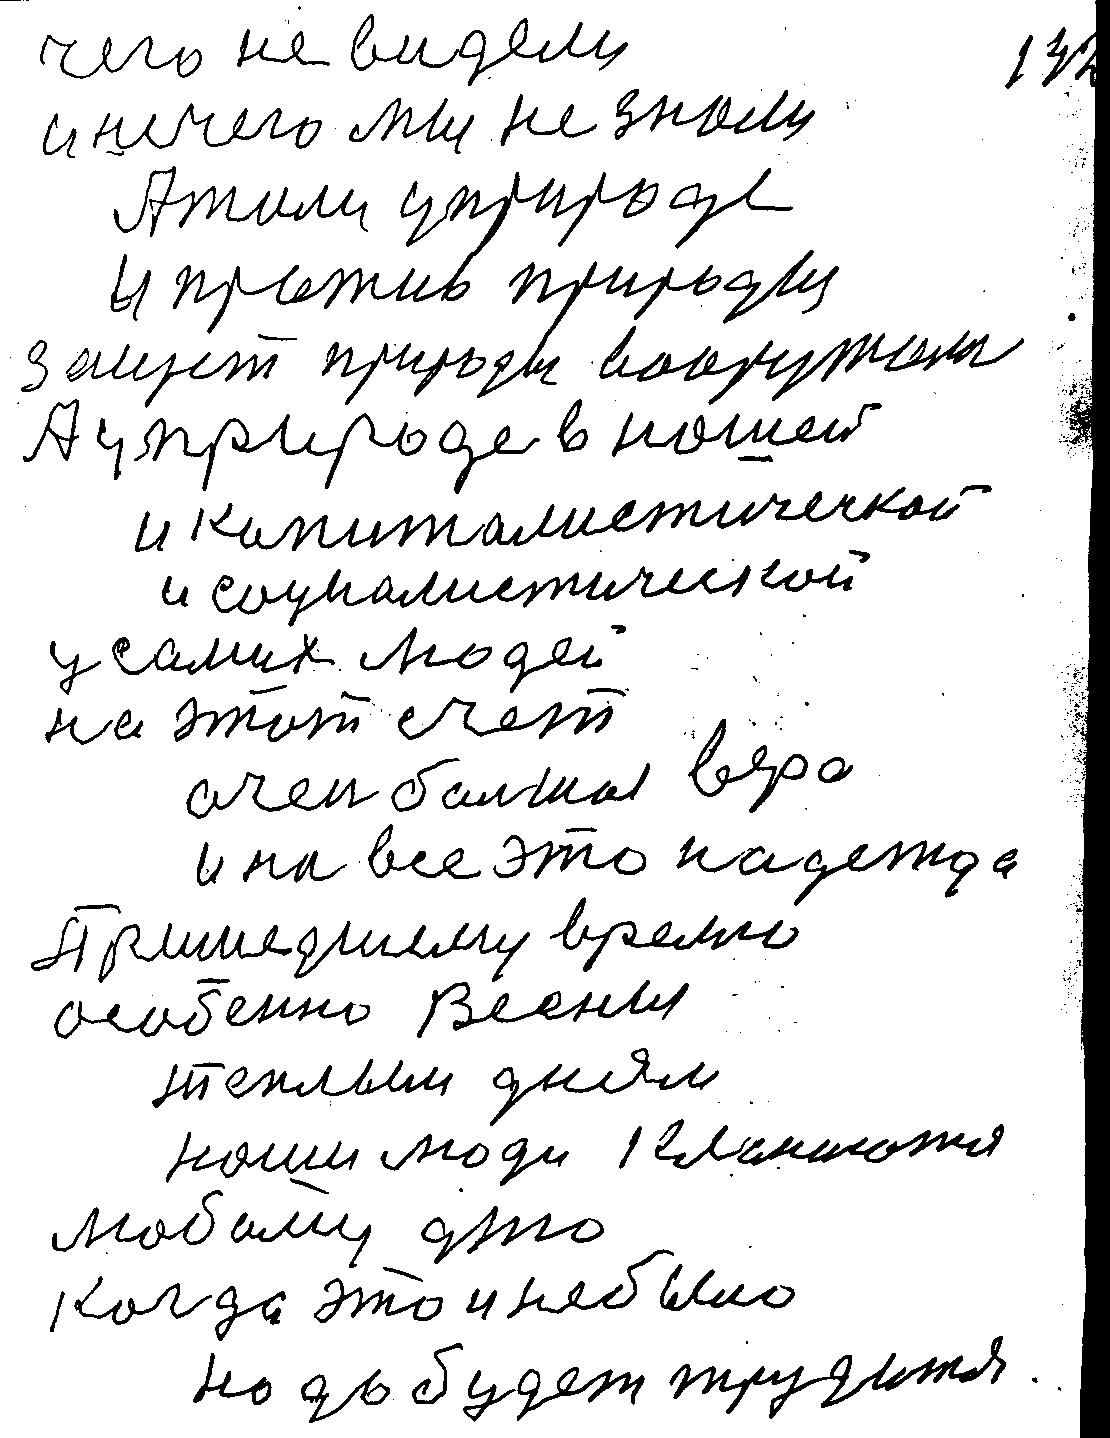 132
чего не видели
и нечего мы не знали
Атали у природе
и против природы
защит природы вооружали
А у природе в нашей
и капиталистичечкой
и социалистической
у самих людей
на этот счет
очен балшая вера
и на все это надежда
Пришедшему времю
особенно Весны
теплым дням
наши люди Кланиются
любому дню
когда это и небыло
надо будет трудится